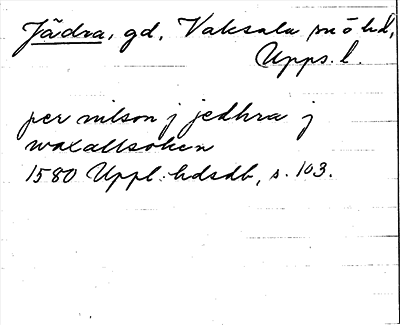 Jädra, gd, Vaksala sn o hd,
Upps. l.
per nilson j jedhra j
waxallsoken
1580 Uppl. hdsdb, s. 103.